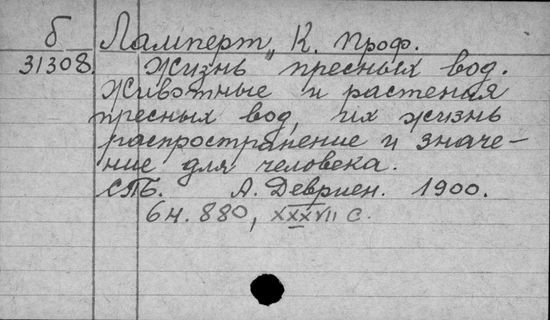 б Ламперт, К. Проф.
31308. "Жизнь пресных вод.
Животные и растения
пресных вод, их жизнь
распространение и значе-
ние для человека.
СПБ. А. Девриен. 1900.
6н. 880, XXXVII с.